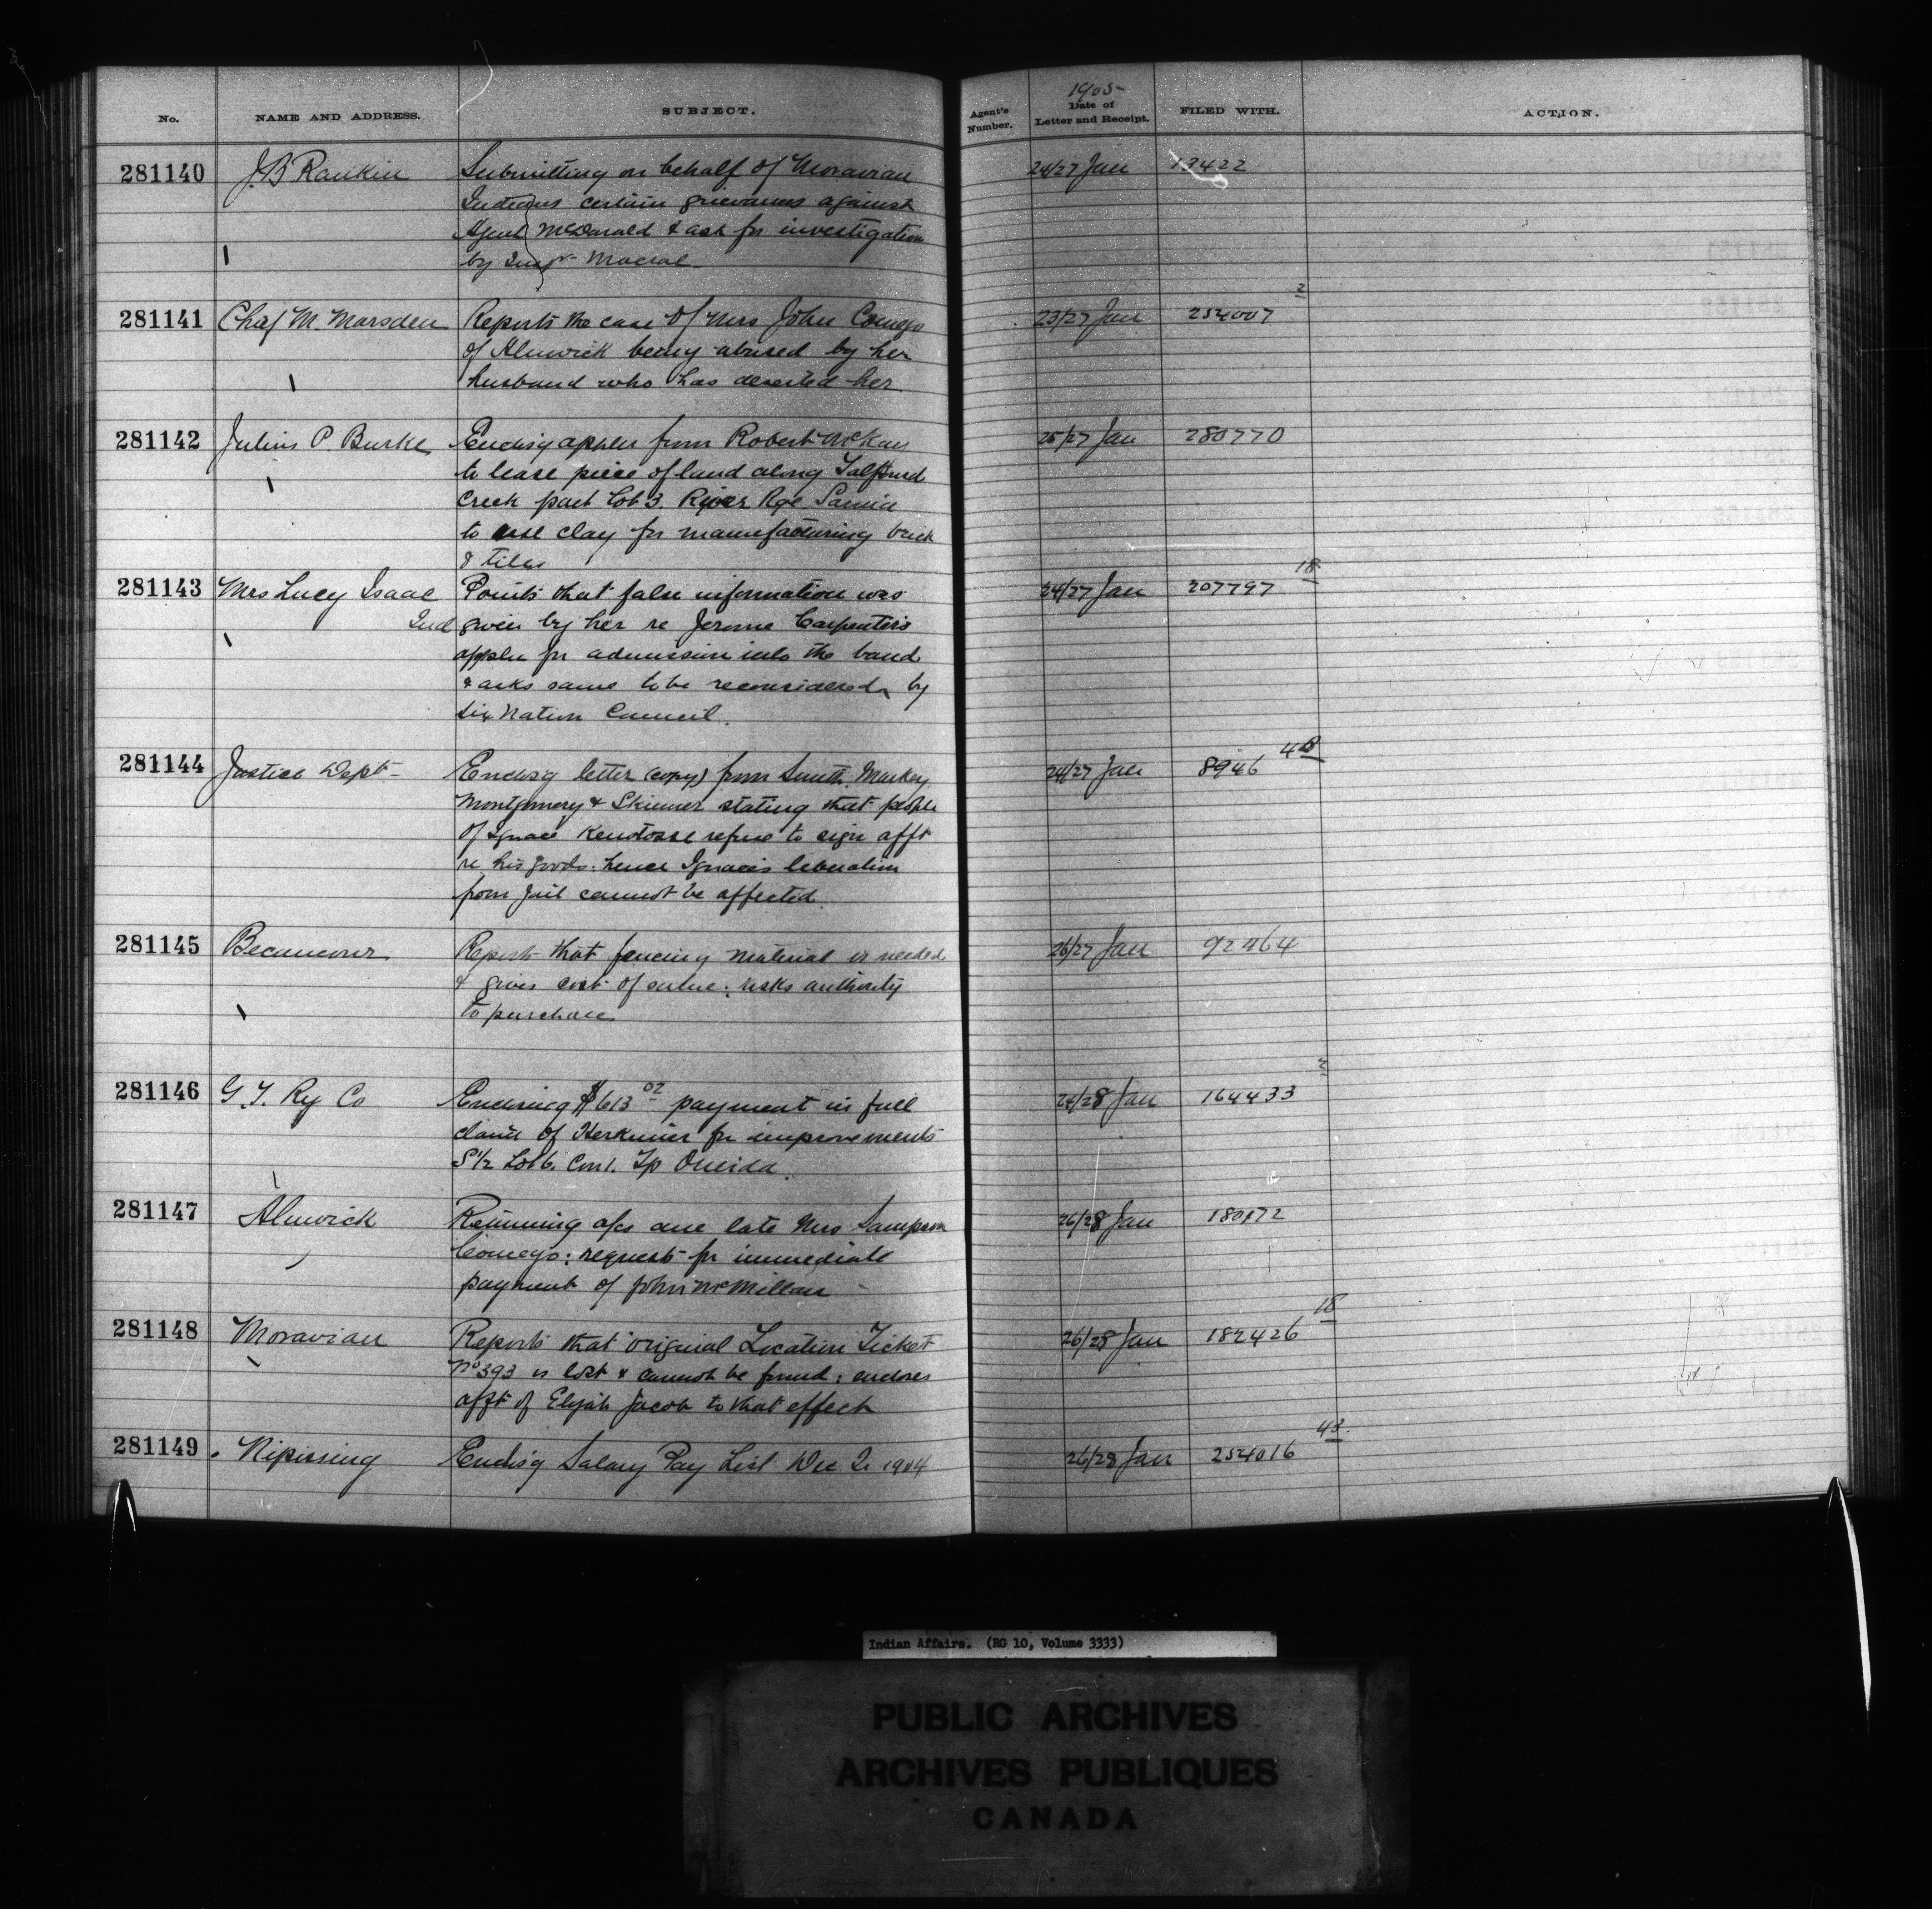 No. NAME AND ADDRESS. SUBJECT. Agent's Number. 1905 Date of Letter and Receipt. FILED WITH. ACTION.
281140 J.B Rankin Submitting on behalf of Moravian 24/27 Jan 13422
Indians certain grievances against
Agent McDonald & ask for investigation
by Insp. Macrae
281141 Chas M. Marsden Reports the case of Mrs John Comego 23/27 Jan 254007 2
of Alnwick being abused by her
husband who has deserted her
281142 Julius P. Burke Enclsg appln from Robert McKay 25/27 Jan 280770
to lease piece of land along Talfourd
Creek part Lot 3. River Rge Sarnia
to use clay for manufacturing brick
& tiles
281143 Mrs Lucy Isaac Points that false information was 24/27 Jan 207797 18
Ind given by her re Jerome Carpenter's
appln for admission into the band
& asks same to be reconsidered by
Six Nation Council.
281144 Justice Dept Enclosg letter (copy) from Smith, Markey 24/27 Jan 8946
Montgomery & Skinner stating that people
of Ignace refuse to sign afft
re his goods: hence Ignace's liberation
from Jail cannot be affected.
281145 Becancour Reports that fencing material is needed 26/27 Jan 92464
& gives cost of : asks authority
to purchase
281146 G.T. Ry Co Enclosing $613 02 payment in full 24/28 Jan 164433
claim of Herkimer for improvements
S 1/2 Lot 6. Con 1. Tp Oneida.
281147 Alnwick Returning a/cs late Mrs Sampson 26/28 Jan
Comego: requests for immediate
payment of John McMillan
281148 Moravian Reports that original Location Ticket 26/28 Jan 182426 18
No 393 is lost & cannot be found; encloses
afft of Elijah Jacob to that effect
281149 Nipissing Enclsg Salary Pay List Dec Qr 1904 26/28 Jan 254016 43
Indian Affairs. (RG 10, Volume 3333)
PUBLIC ARCHIVES
ARCHIVES PUBLIQUES
CANADA